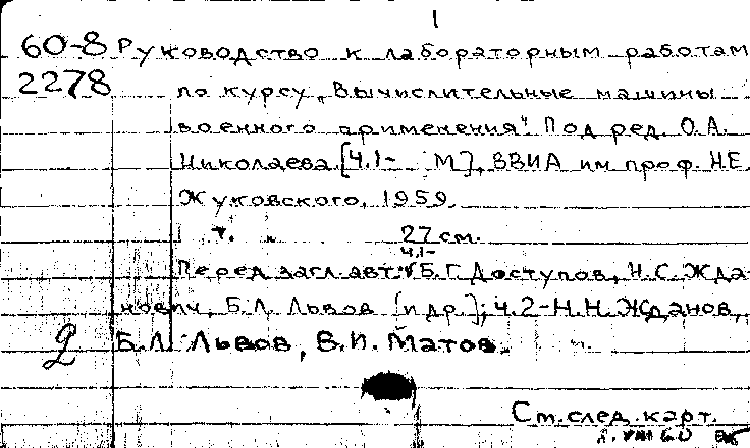 1
60-8 Руководство к лабораторным работам
2278 по курсу „Вычислительные машины
военного применения". Под ред. О.А.
Николаева. [Ч.1- М], ВВИА им проф. Н.Е.
Жуковского, 1959.
т. 27 см.
Ч.1-
Перед загл. авт.: Б.Г. Доступов, Н.С. Жда-
нович, Б.Л. Львов [и др.]; Ч.2-Н.Н. Жданов,
2 Б.Л. Львов, В.И. Матов.
См. след. карт.